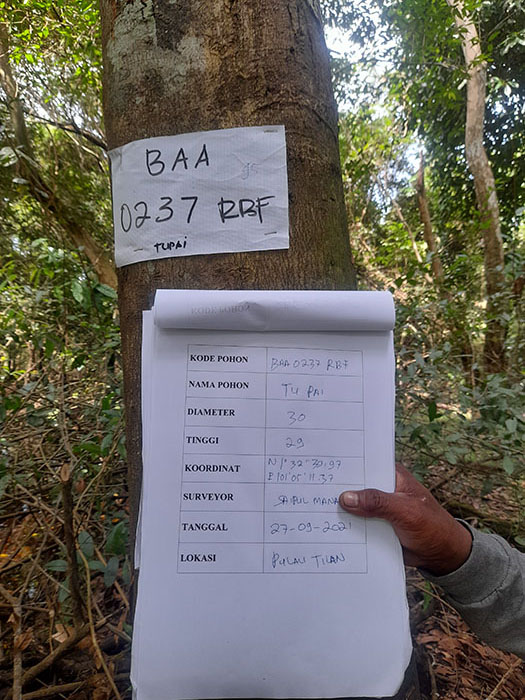 BAA
0237 RBF
TUPAI
KODE POHON
KODE POHON BAA 0237 RBF
NAMA POHON TU PAI
DIAMETER 30
TINGGI 29
KOORDINAT N 1° 32" 30.97
E 101° 05' 11.37
SURVEYOR SAIPUL MANA
TANGGAL 27-09-2021
LOKASI PULAU TUAN